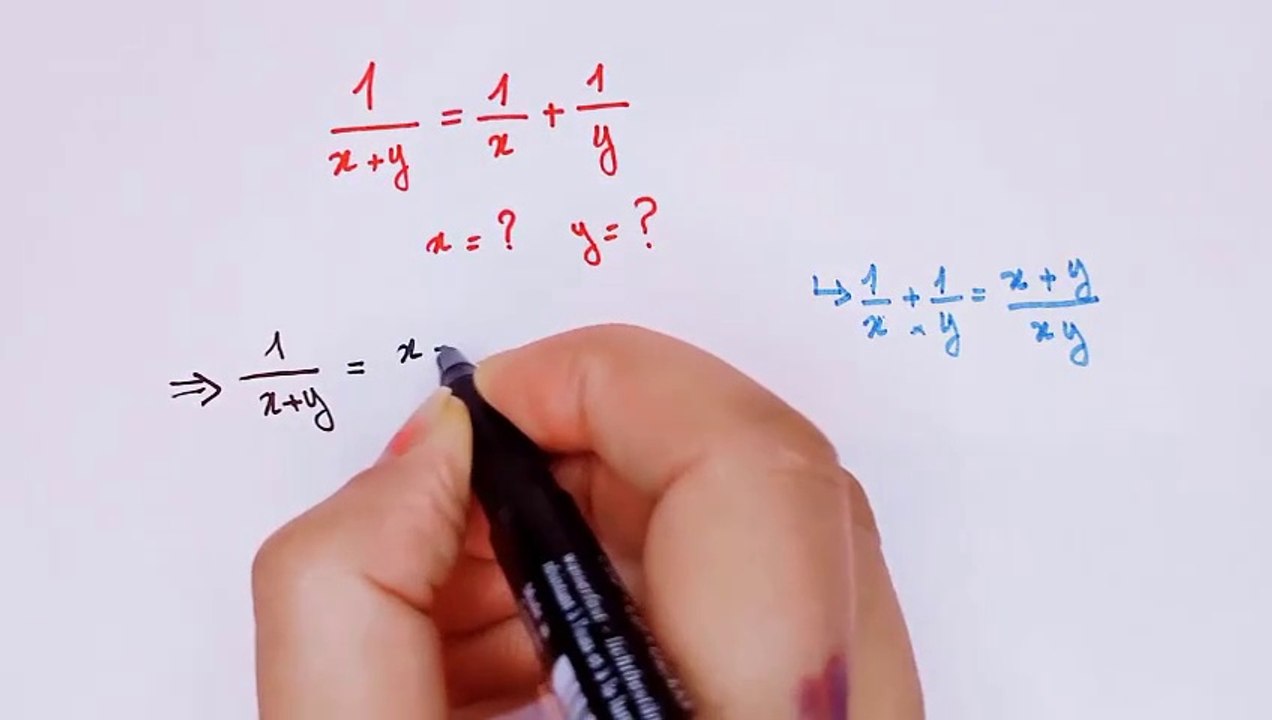 1/(x+y) = 1/x + 1/y
x = ? y = ?
↳ 1/x + 1/y = (x+y)/(xy)
⇒ 1/(x+y) = x -